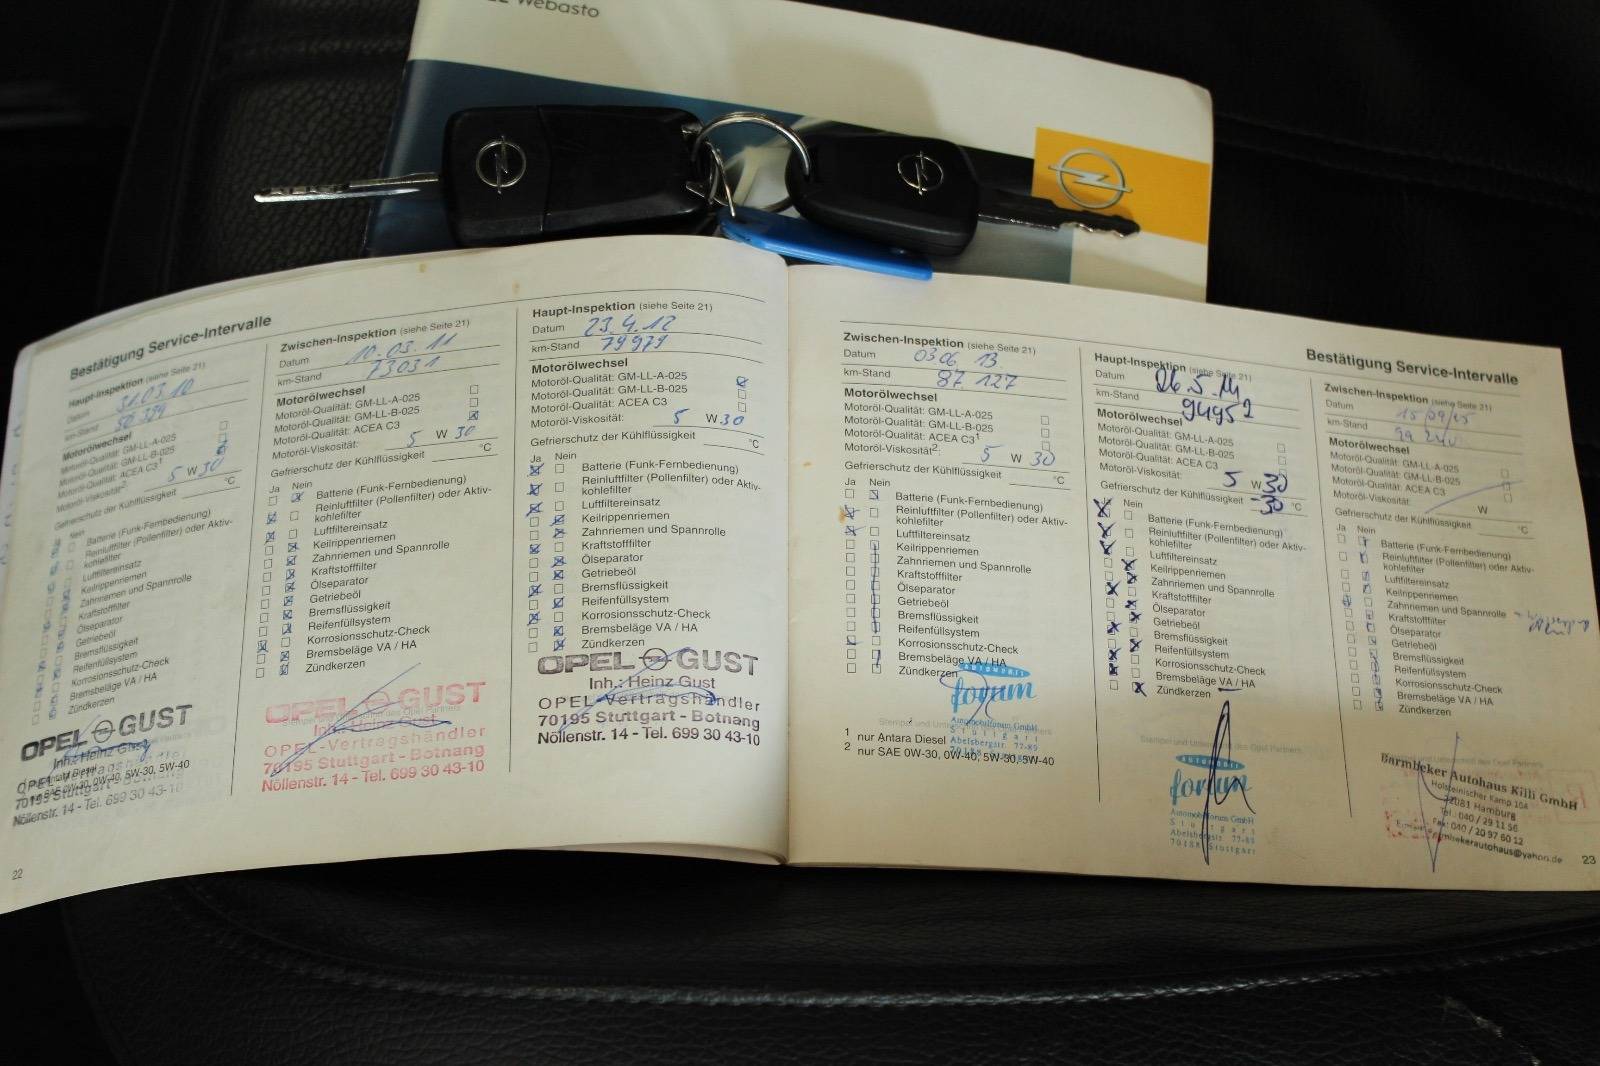 Webasto
Bestätigung Service-Intervalle
Haupt-Inspektion (siehe Seite 21)
Datum 31.03.10
km-Stand
Motorölwechsel
Motoröl-Qualität: GM-LL-A-025
Motoröl-Qualität: GM-LL-B-025
Motoröl-Qualität: ACEA C3¹
Motoröl-Viskosität²: 5 W 30
Gefrierschutz der Kühlflüssigkeit °C
Ja Nein
Batterie (Funk-Fernbedienung)
Reinluftfilter (Pollenfilter) oder Aktiv-
kohlefilter
Luftfiltereinsatz
Keilrippenriemen
Zahnriemen und Spannrolle
Kraftstofffilter
Ölseparator
Getriebeöl
Bremsflüssigkeit
Reifenfüllsystem
Korrosionsschutz-Check
Bremsbeläge VA / HA
Zündkerzen
OPEL GUST
Inh.: Heinz Gust
OPEL-Vertragshändler
70195 Stuttgart - Botnang
Nöllenstr. 14 - Tel. 699 30 43-10
22
Zwischen-Inspektion (siehe Seite 21)
Datum 10.03.11
km-Stand 73031
Motorölwechsel
Motoröl-Qualität: GM-LL-A-025
Motoröl-Qualität: GM-LL-B-025
Motoröl-Qualität: ACEA C3
Motoröl-Viskosität: 5 W 30
Gefrierschutz der Kühlflüssigkeit °C
Ja Nein
Batterie (Funk-Fernbedienung)
Reinluftfilter (Pollenfilter) oder Aktiv-
kohlefilter
Luftfiltereinsatz
Keilrippenriemen
Zahnriemen und Spannrolle
Kraftstofffilter
Ölseparator
Getriebeöl
Bremsflüssigkeit
Reifenfüllsystem
Korrosionsschutz-Check
Bremsbeläge VA / HA
Zündkerzen
OPEL GUST
Inh.: Heinz Gust
OPEL-Vertragshändler
70195 Stuttgart - Botnang
Nöllenstr. 14 - Tel. 699 30 43-10
Haupt-Inspektion (siehe Seite 21)
Datum 23.4.12
km-Stand 79979
Motorölwechsel
Motoröl-Qualität: GM-LL-A-025
Motoröl-Qualität: GM-LL-B-025
Motoröl-Qualität: ACEA C3
Motoröl-Viskosität: 5 W 30
Gefrierschutz der Kühlflüssigkeit °C
Ja Nein
Batterie (Funk-Fernbedienung)
Reinluftfilter (Pollenfilter) oder Aktiv-
kohlefilter
Luftfiltereinsatz
Keilrippenriemen
Zahnriemen und Spannrolle
Kraftstofffilter
Ölseparator
Getriebeöl
Bremsflüssigkeit
Reifenfüllsystem
Korrosionsschutz-Check
Bremsbeläge VA / HA
Zündkerzen
OPEL GUST
Inh.: Heinz Gust
OPEL-Vertragshändler
70195 Stuttgart - Botnang
Nöllenstr. 14 - Tel. 699 30 43-10
Zwischen-Inspektion (siehe Seite 21)
Datum 03 06 13
km-Stand 87 127
Motorölwechsel
Motoröl-Qualität: GM-LL-A-025
Motoröl-Qualität: GM-LL-B-025
Motoröl-Qualität: ACEA C3¹
Motoröl-Viskosität²: 5 W 30
Gefrierschutz der Kühlflüssigkeit °C
Ja Nein
Batterie (Funk-Fernbedienung)
Reinluftfilter (Pollenfilter) oder Aktiv-
kohlefilter
Luftfiltereinsatz
Keilrippenriemen
Zahnriemen und Spannrolle
Kraftstofffilter
Ölseparator
Getriebeöl
Bremsflüssigkeit
Reifenfüllsystem
Korrosionsschutz-Check
Bremsbeläge VA / HA
Zündkerzen
AUTOMOBIL
forum
Automobilforum GmbH
Stuttgart
Abelsbergstr. 77-89
1 nur Antara Diesel
2 nur SAE 0W-30, 0W-40, 5W-30, 5W-40
Bestätigung Service-Intervalle
Haupt-Inspektion (siehe Seite 21)
Datum 26.5.14
km-Stand 94952
Motorölwechsel
Motoröl-Qualität: GM-LL-A-025
Motoröl-Qualität: GM-LL-B-025
Motoröl-Qualität: ACEA C3
Motoröl-Viskosität: 5 W 30
Gefrierschutz der Kühlflüssigkeit -30 °C
Ja Nein
Batterie (Funk-Fernbedienung)
Reinluftfilter (Pollenfilter) oder Aktiv-
kohlefilter
Luftfiltereinsatz
Keilrippenriemen
Zahnriemen und Spannrolle
Kraftstofffilter
Ölseparator
Getriebeöl
Bremsflüssigkeit
Reifenfüllsystem
Korrosionsschutz-Check
Bremsbeläge VA / HA
Zündkerzen
Stempel und Unterschrift des Opel Partners
AUTOMOBIL
forum
Automobilforum GmbH
Stuttgart
Abelsbergstr. 77-89
70188 Stuttgart
Zwischen-Inspektion (siehe Seite 21)
Datum 15/09/15
km-Stand
Motorölwechsel
Motoröl-Qualität: GM-LL-A-025
Motoröl-Qualität: GM-LL-B-025
Motoröl-Qualität: ACEA C3
Motoröl-Viskosität: W
Gefrierschutz der Kühlflüssigkeit °C
Ja Nein
Batterie (Funk-Fernbedienung)
Reinluftfilter (Pollenfilter) oder Aktiv-
kohlefilter
Luftfiltereinsatz
Keilrippenriemen
Zahnriemen und Spannrolle
Kraftstofffilter
Ölseparator
Getriebeöl
Bremsflüssigkeit
Reifenfüllsystem
Korrosionsschutz-Check
Bremsbeläge VA / HA
Zündkerzen
Barmbeker Autohaus Killi GmbH
Holsteinischer Kamp 104
22081 Hamburg
Tel.: 040 / 29 11 56
Fax: 040 / 20 97 60 12
barmbekerautohaus@yahoo.de
23